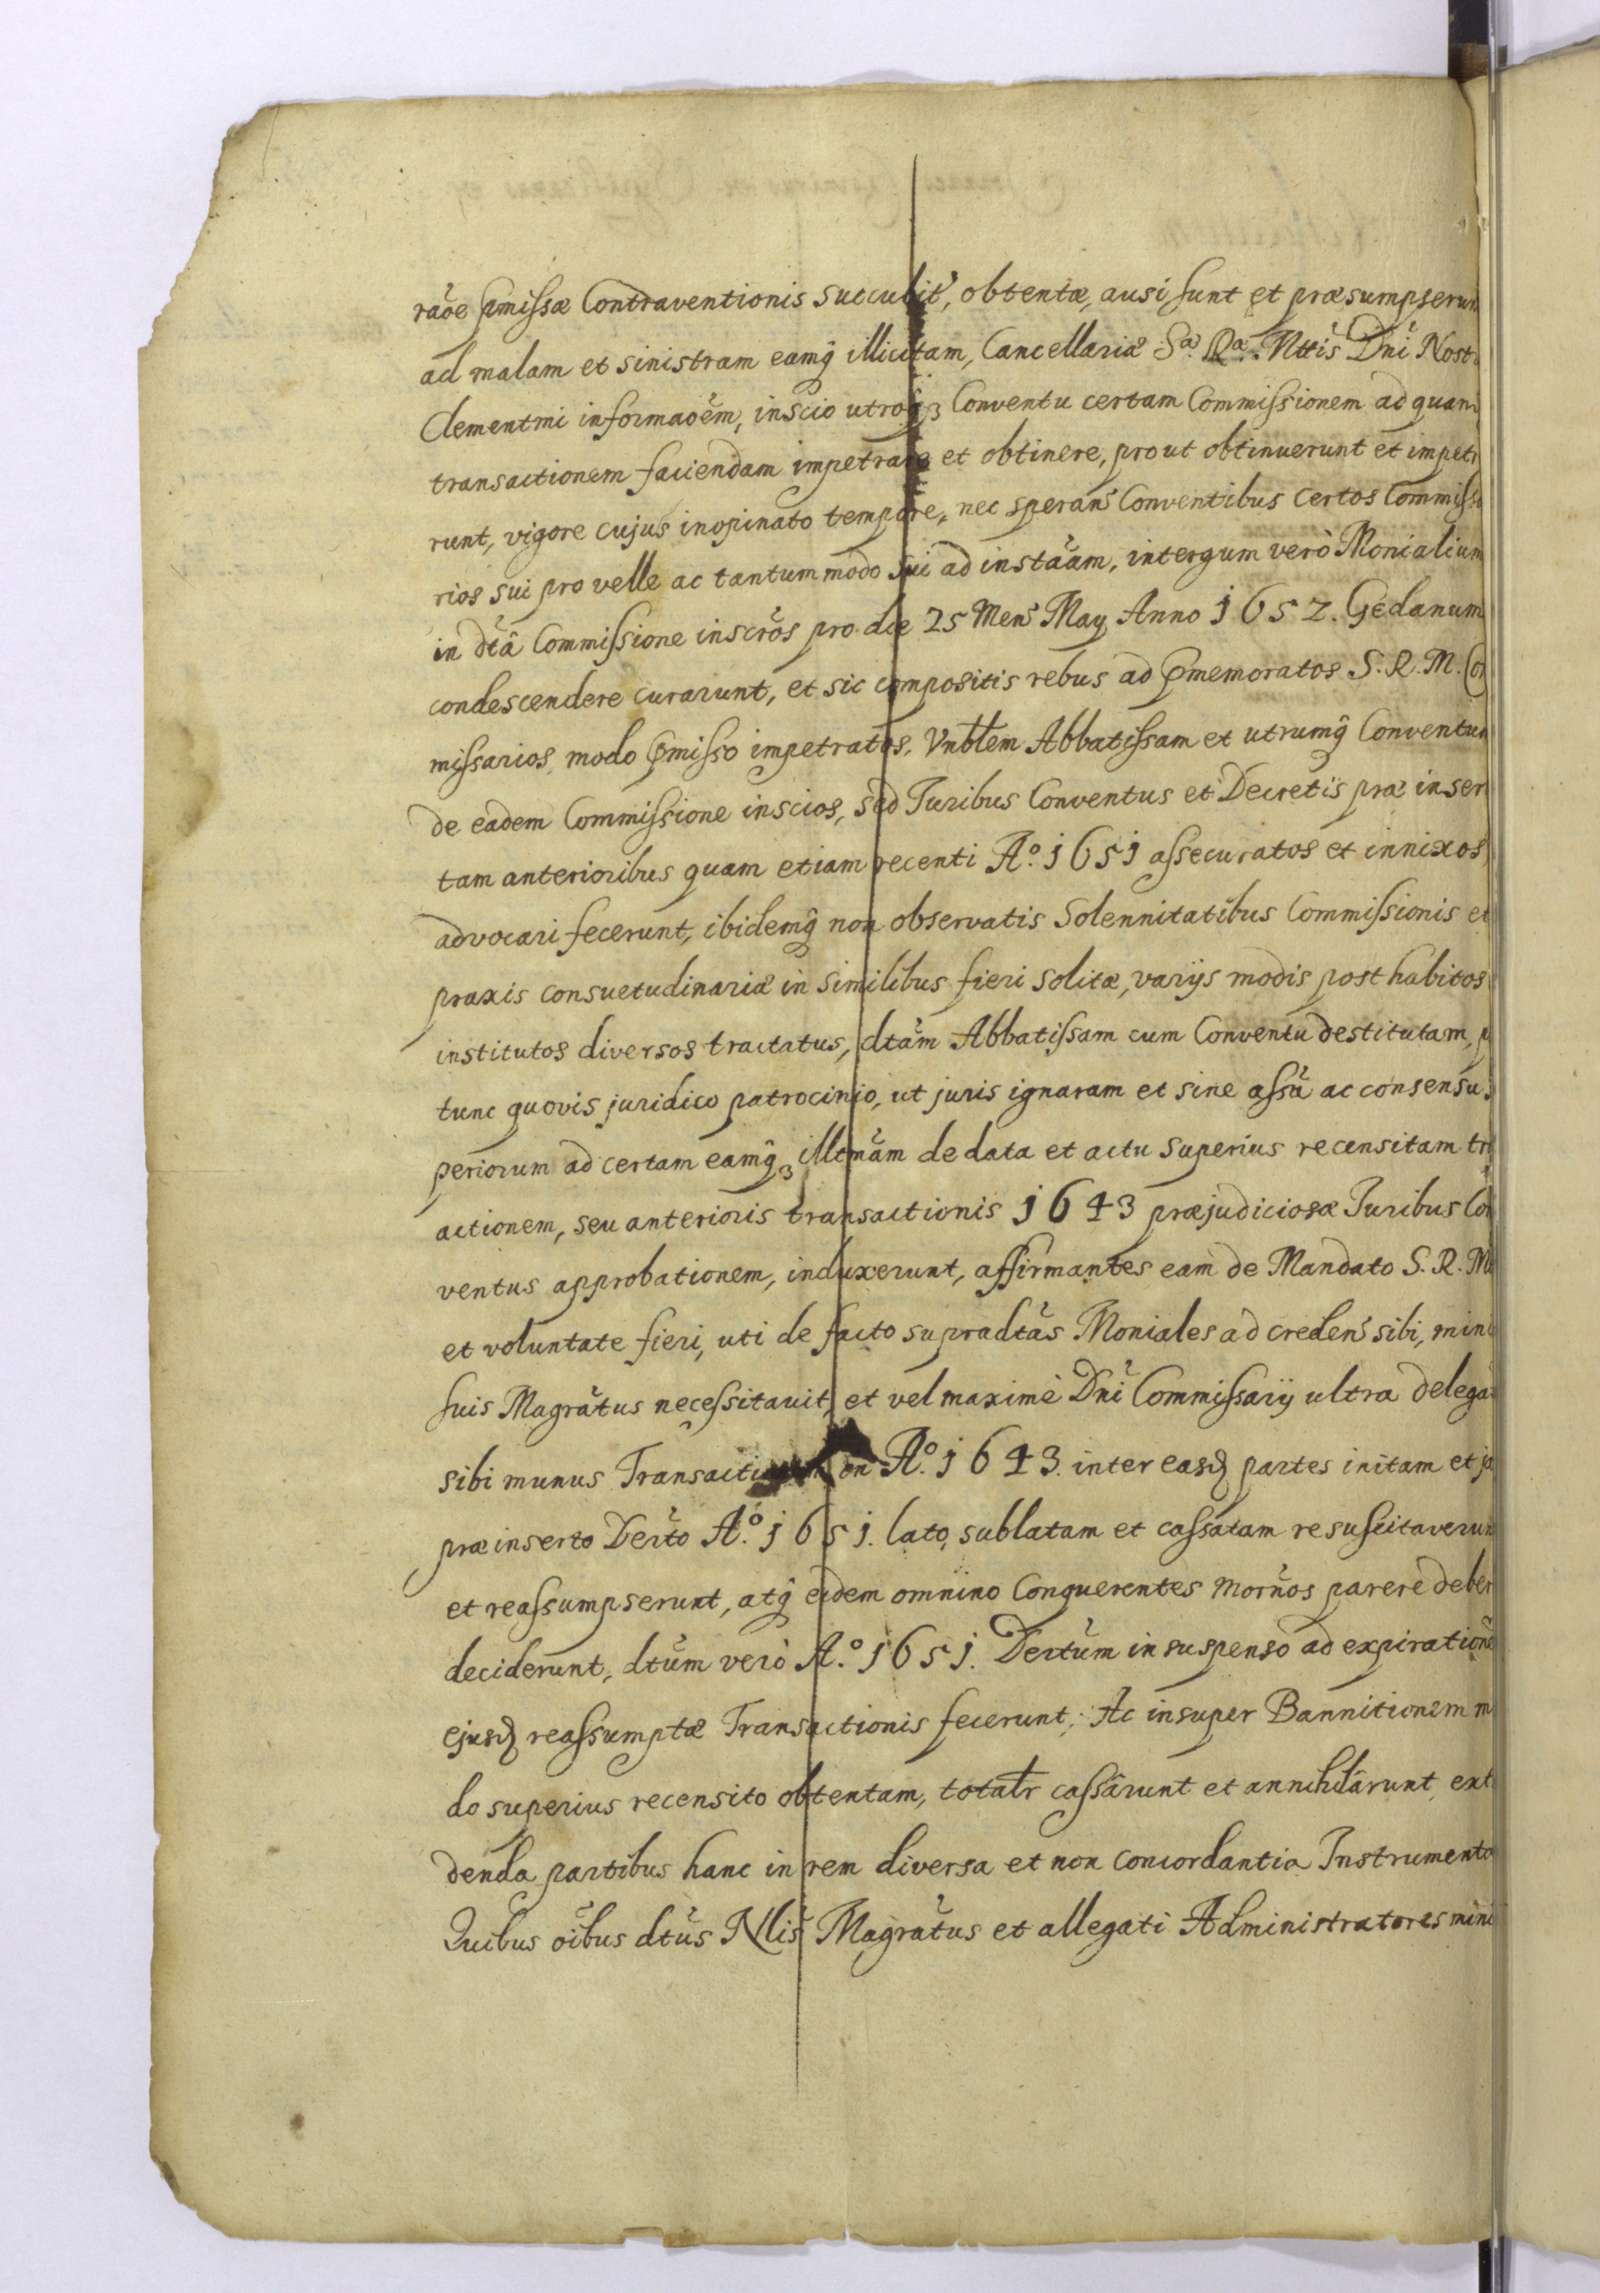 raõe pmissæ Contraventionis succubit, obtentæ, ausi sunt et præsumpserun
ad malam et sinistram eamq̃ illicitam, Cancellariæ Sæ. Ræ. Mttis Dni Nost
Clementmi informaoẽm, inscio utroqȝ Conventu certam Commissionem ad quam
transactionem faciendam impetrare et obtinere, prout obtinuerunt et impetr
runt, vigore cujus inopinato tempore, nec speran Conventibus certos Commissa
rios sui pro velle ac tantummodo sui ad instãam, intergum verò Monialium
in dtâ Commissione inscrõs pro die 25 Mens May Anno 1652. Gedanum
condescendere curarunt, et sic compositis rebus ad pmemoratos S. R. M. Co
missarios, modo pmisso impetratos, Vnblem Abbatissam et utrumq̃ Conventum
de eadem Commissione inscios, sed Juribus Conventus et Decretis præ inser
tam anterioribus quam etiam recenti Aº. 1651 assecuratos et innixos
advocari fecerunt, ibidemq̃ non observatis Solennitatibus Commissionis et
praxis consuetudinariæ in similibus fieri solitæ, varijs modis post habitos
institutos diversos tractatus, dtam Abbatissam cum Conventu destitutam, p
tunc quovis juridico patrocinio, ut juris ignaram et sine assũ ac consensu
periorum ad certam eamqȝ illtmam de data et actu superius recensitam tr
actionem, seu anterioris transactionis 1643 præjudiciosæ Juribus Con
ventus approbationem, induxerunt, affirmantes eam de Mandato S. R. M.
et voluntate fieri, uti de facto supradtas Moniales ad creden sibi, mini
suis Magratus necessitavit, et vel maximè Dni Commissarij ultra delega
sibi munus Transactionem Aº. 1643. inter easd partes initam et ja
præ inserto Derto Aº. 1651. lato, sublatam et cassatam resuscitaverun
et reassumpserunt, atq̃ eidem omnino Conquerentes mornos parere deber
deciderunt, dtum verò Aº. 1651. Dertum in suspenso ad expirationẽ
ejusd reassumptæ Transactionis fecerunt; Ac insuper Bannitionem m
do superius recensito obtentam, totalr cassârunt et annihilârunt, ext
denda partibus hanc in rem diversa et non concordantia Instrumenta
Quibus oibus dtus Nlis Magratus et allegati Administratores mini